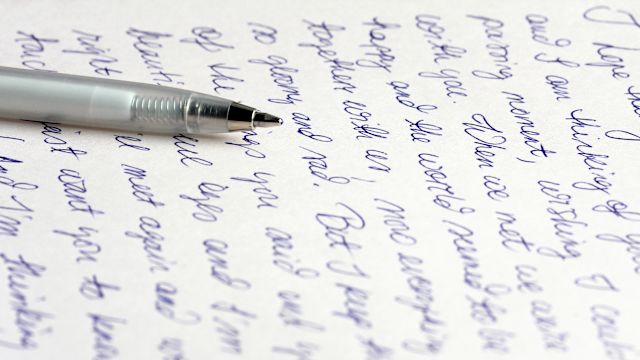 I hope
and I am thinking of you
passing moment, wishing I could
with you. When we met we were
happy and the world seemed to be
together with us, now everything
so gloomy and sad. But I keep
of the you said and
eyes and I'm
right meet again and
just want you to know
And I'm thinking